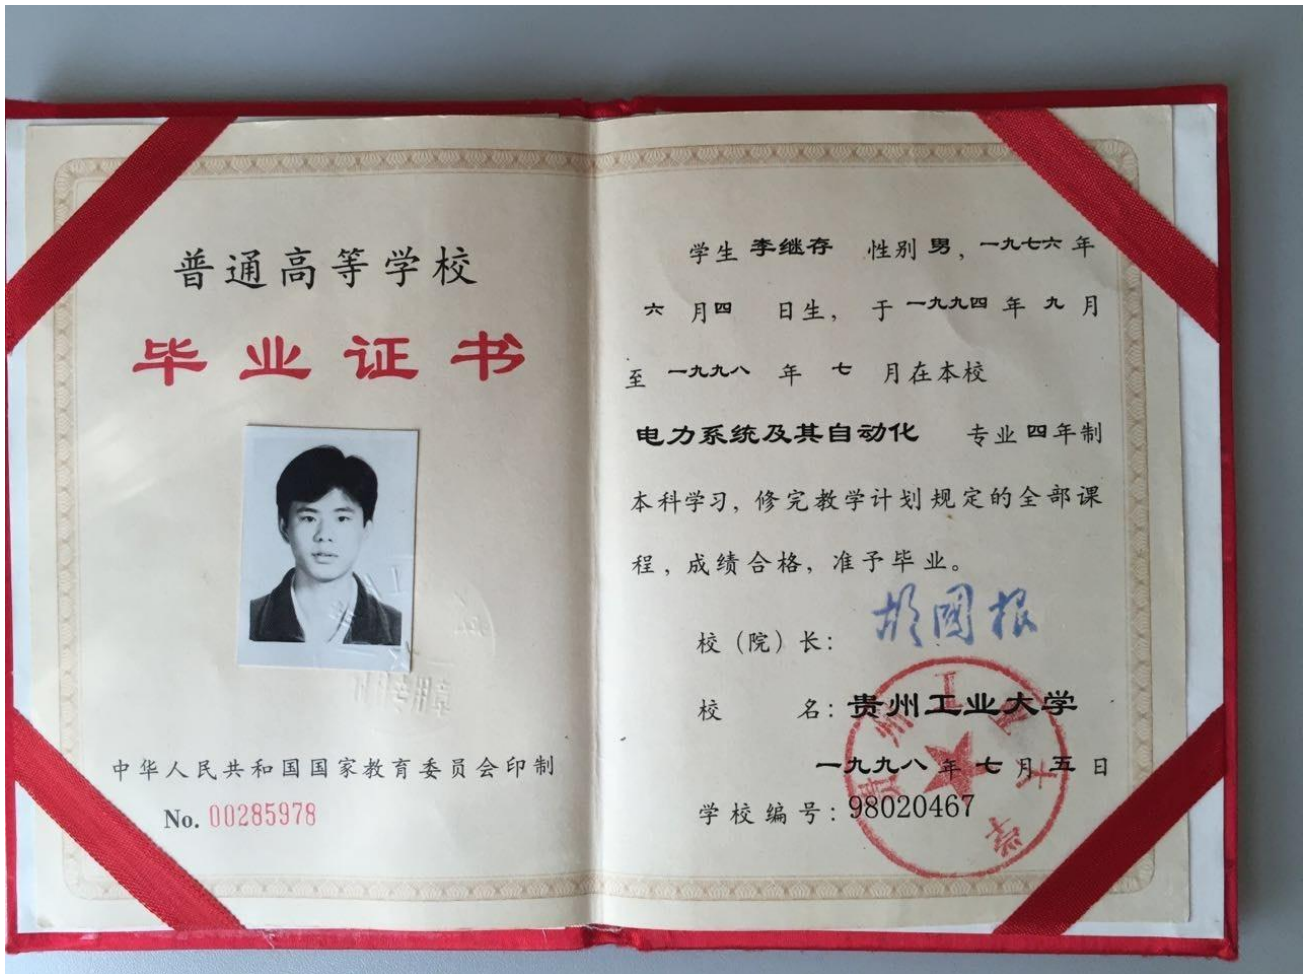 普通高等学校
毕业证书
中华人民共和国国家教育委员会印制
No. 00285978
学生 李继存 性别 男，一九七六年
六月四 日生，于一九九四年九月
至一九九八年七月在本校
电力系统及其自动化 专业四年制
本科学习，修完教学计划规定的全部课
程，成绩合格，准予毕业。
校（院）长：胡国根
校 名：贵州工业大学
一九九八年七月五日
学校编号：98020467
贵州工业大学